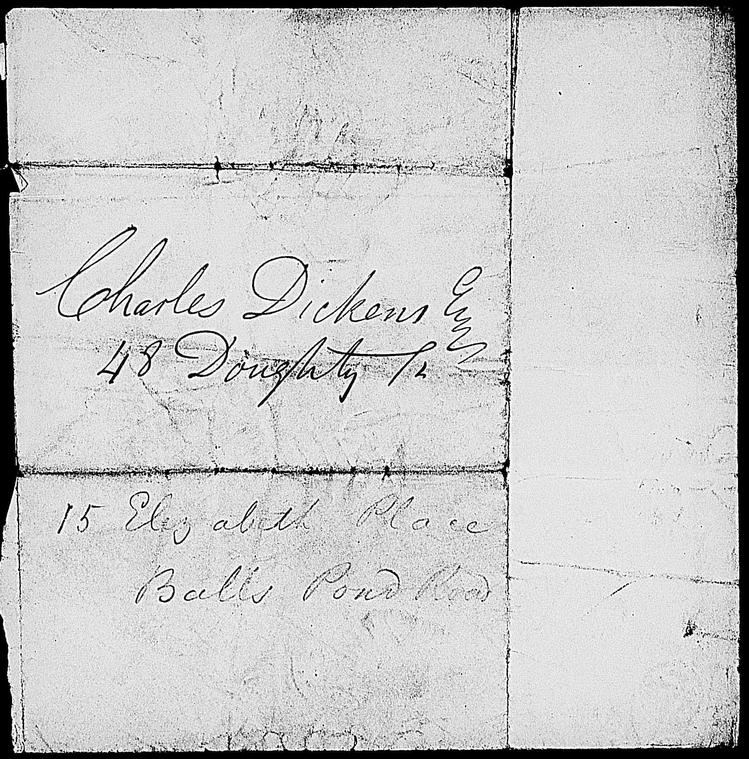 Charles Dickens Esqr
48 Doughty St
15 Elizabeth Place
Balls Pond Road